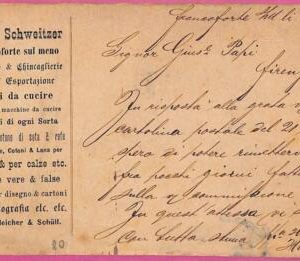 Schweitzer
oforte sul meno
& Chincaglierie
Esportazione
i da cucire
macchine da cucire
i di ogni Sorta
, Cotoni & Lana per
& per calze etc.
e vere & false
r disegno & cartoni
ografia etc. etc.
leicher & Schüll.
20
Francoforte s/M li
Signor Gius. Papi
Firen
In risposta alla grata
cartolina postale del 21
spero di potere rimetter
fra pochi giorni fatt
sulla commissione
In quest attesa vi
con tutta stima